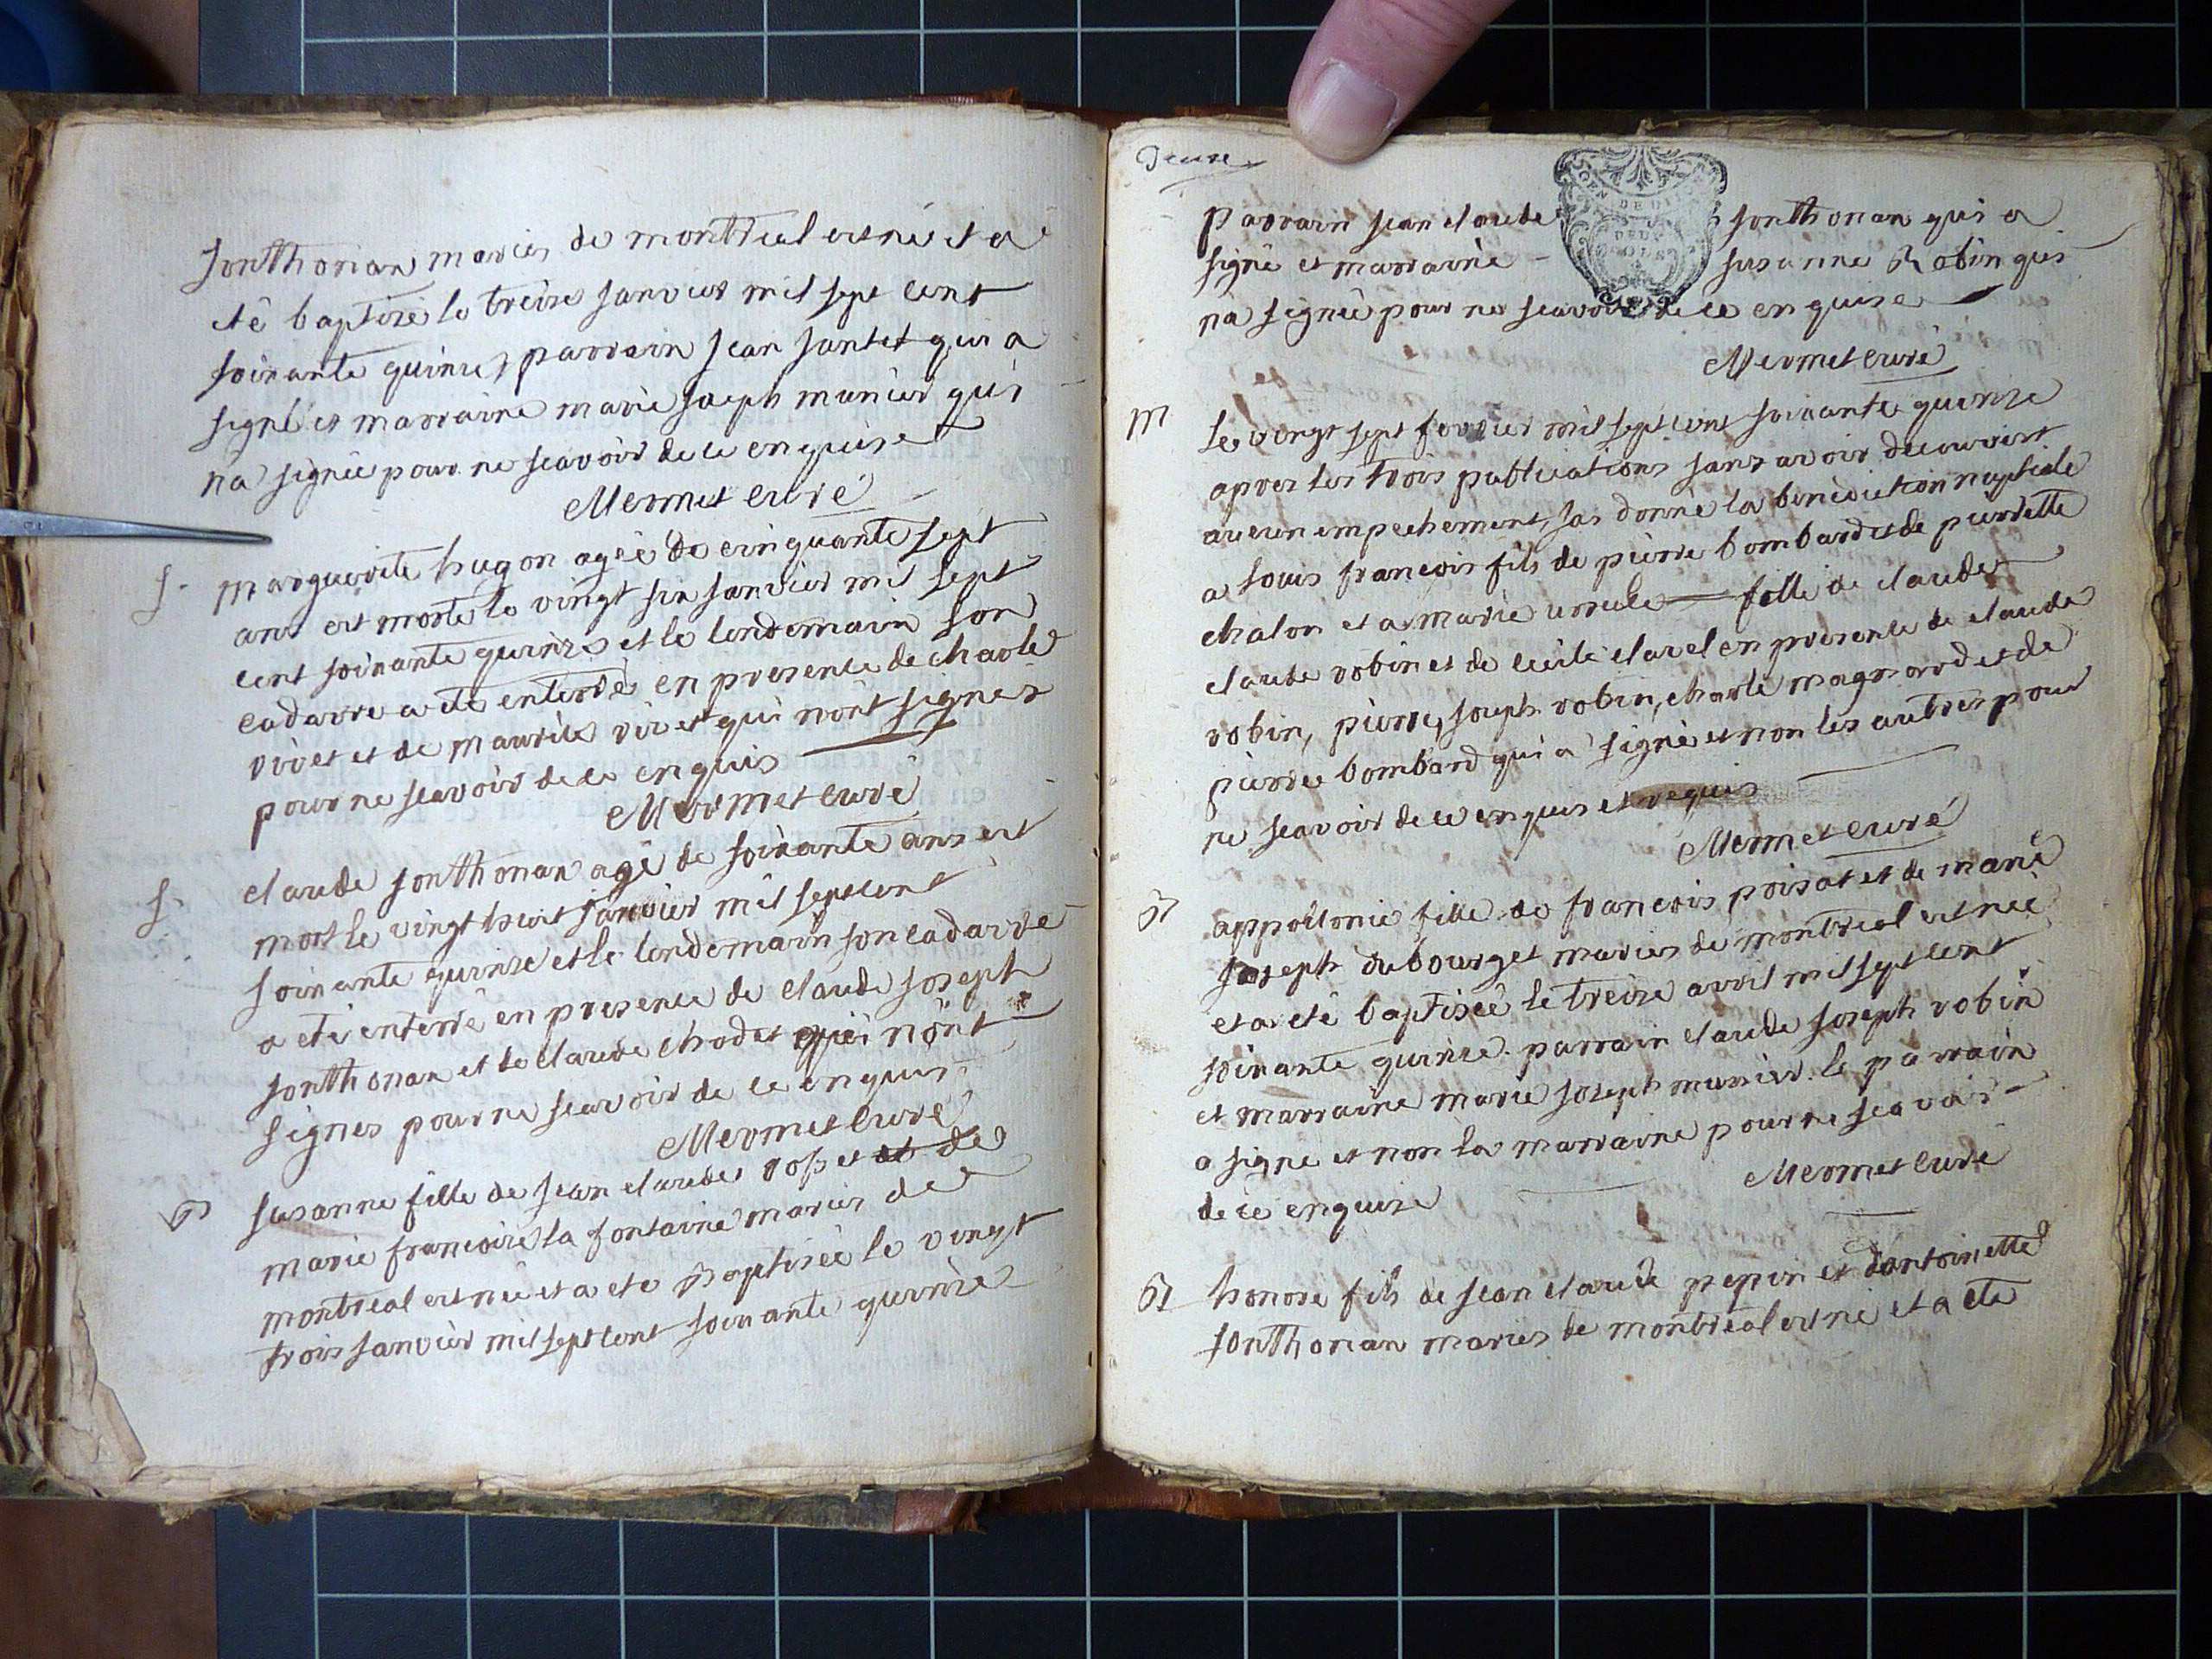 jonthonan mariés de montreal est né et a
eté baptisé le treize janvier mil sept cent
soixante quinze, parrain jean jantet qui a
signé et marraine marie joseph munier qui
na signée pour ne scavoir de ce enquise
Mermet curé
S. marguerite hugon agée de cinquante sept
ans est morte le vingt six janvier mil sept
cent soixante quinze et le lendemain son
cadavre a eté enterré en presence de charle
vivet et de maurice vivet qui n'ont signes
pour ne scavoir de ce enquis
Mermet curé
S. claude jonthonan agé de soixante ans est
mort le vingt huit janvier mil sept cent
soixante quinze et le lendemain son cadavre
a eté enterré en presence de claude joseph
jonthonan et de claude chodet qui n'ont
signes pour ne scavoir de ce enquis.
Mermet curé
B susanne fille de jean claude rosset et de
marie francoise la fontaine mariés de
montreal est née et a eté Baptisée le vingt
trois janvier mil sept cent soixante quinze
Deuxe
parrain jean claude jonthonan qui a
signé et marraine susanne Robin qui
na signée pour ne scavoir de ce enquise
GEN DE
DEUX
SOLS
Mermet curé
M Le vingt sept fevrier mil sept cent soixante quinze
apres les trois publications sans avoir decouvert
aucun empechement, jai donné la benediction nuptiale
a louis francois fils de pierre bombard et de pierrette
chalon et a marie ursule fille de claude
claude robin et de cecile clavel en presence de claude
robin, pierre, joseph robin, charle magnard et de
pierre bombard qui a signé et non les autres pour
ne scavoir de ce enquis et requis
Mermet curé
B appollonie fille de francois poisat et de marie
joseph dubourget mariés de montreal est née
et a eté baptisée le treize avril mil sept cent
soixante quinze. parrain claude joseph robin
et marraine marie joseph munier. le parrain
a signe et non la marraine pour ne scavoir
de ce enquise Mermet curé
B honore fils de jean claude pepin et d'antoinette
jonthonan mariés de montreal est né et a eté